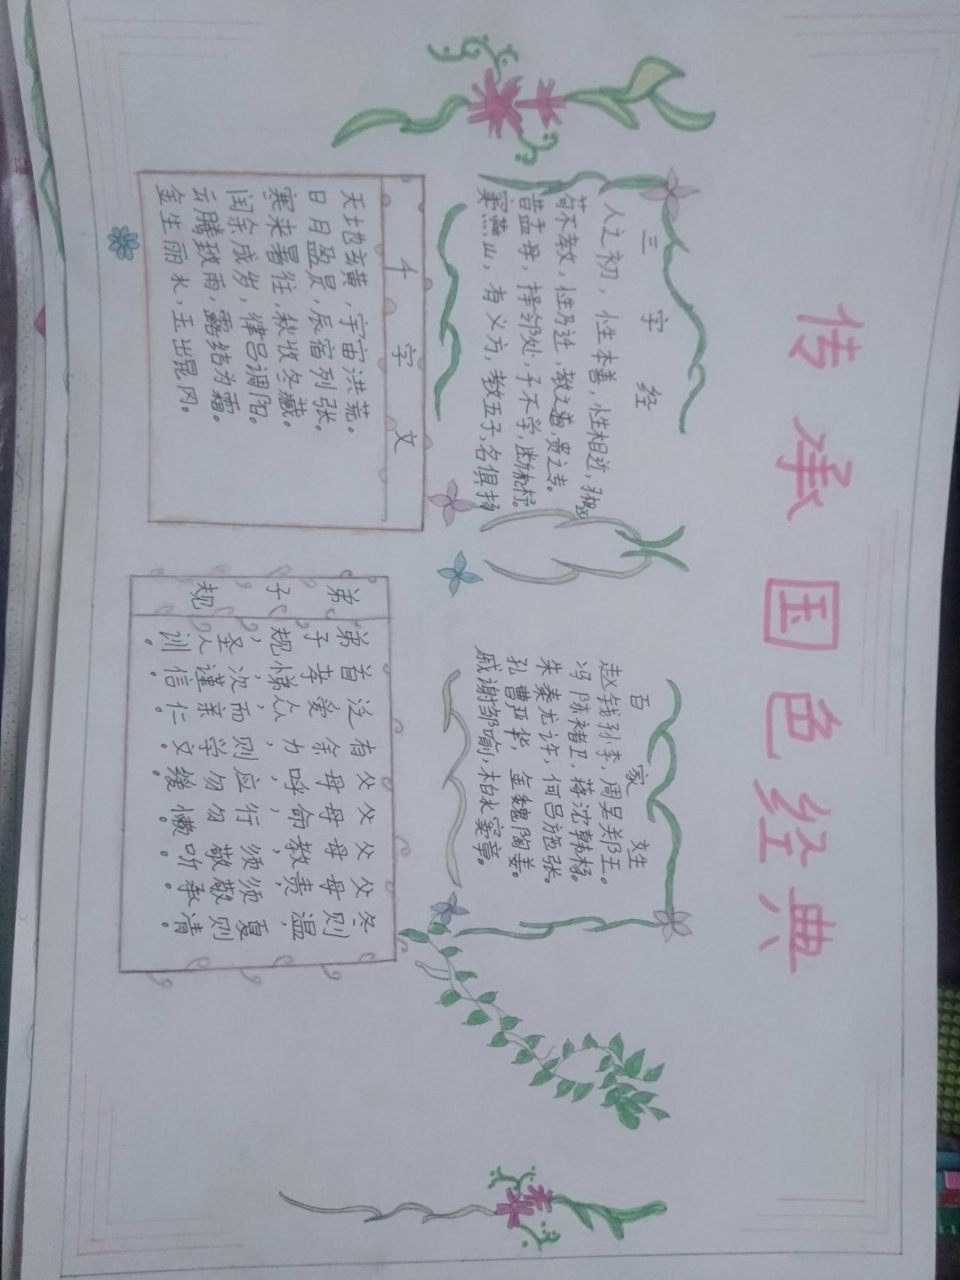 传承国色经典
三字经
人之初，性本善，性相近，习相远
苟不教，性乃迁，教之道，贵之专。
昔孟母，择邻处，子不学，断机杼。
窦燕山，有义方，教五子，名俱扬
百家姓
赵钱孙李，周吴郑王。
冯陈褚卫，蒋沈韩杨。
朱秦尤许，何吕施张。
孔曹严华，金魏陶姜。
戚谢邹喻，柏水窦章。
千字文
天地玄黄，宇宙洪荒。
日月盈昃，辰宿列张。
寒来暑往，秋收冬藏。
闰余成岁，律吕调阳。
云腾致雨，露结为霜。
金生丽水，玉出昆冈。
弟子规
弟子规，圣人训。
首孝悌，次谨信。
泛爱众，而亲仁。
有余力，则学文。
父母呼，应勿缓。
父母命，行勿懒。
父母教，须敬听。
父母责，须敬承。
冬则温，夏则清。